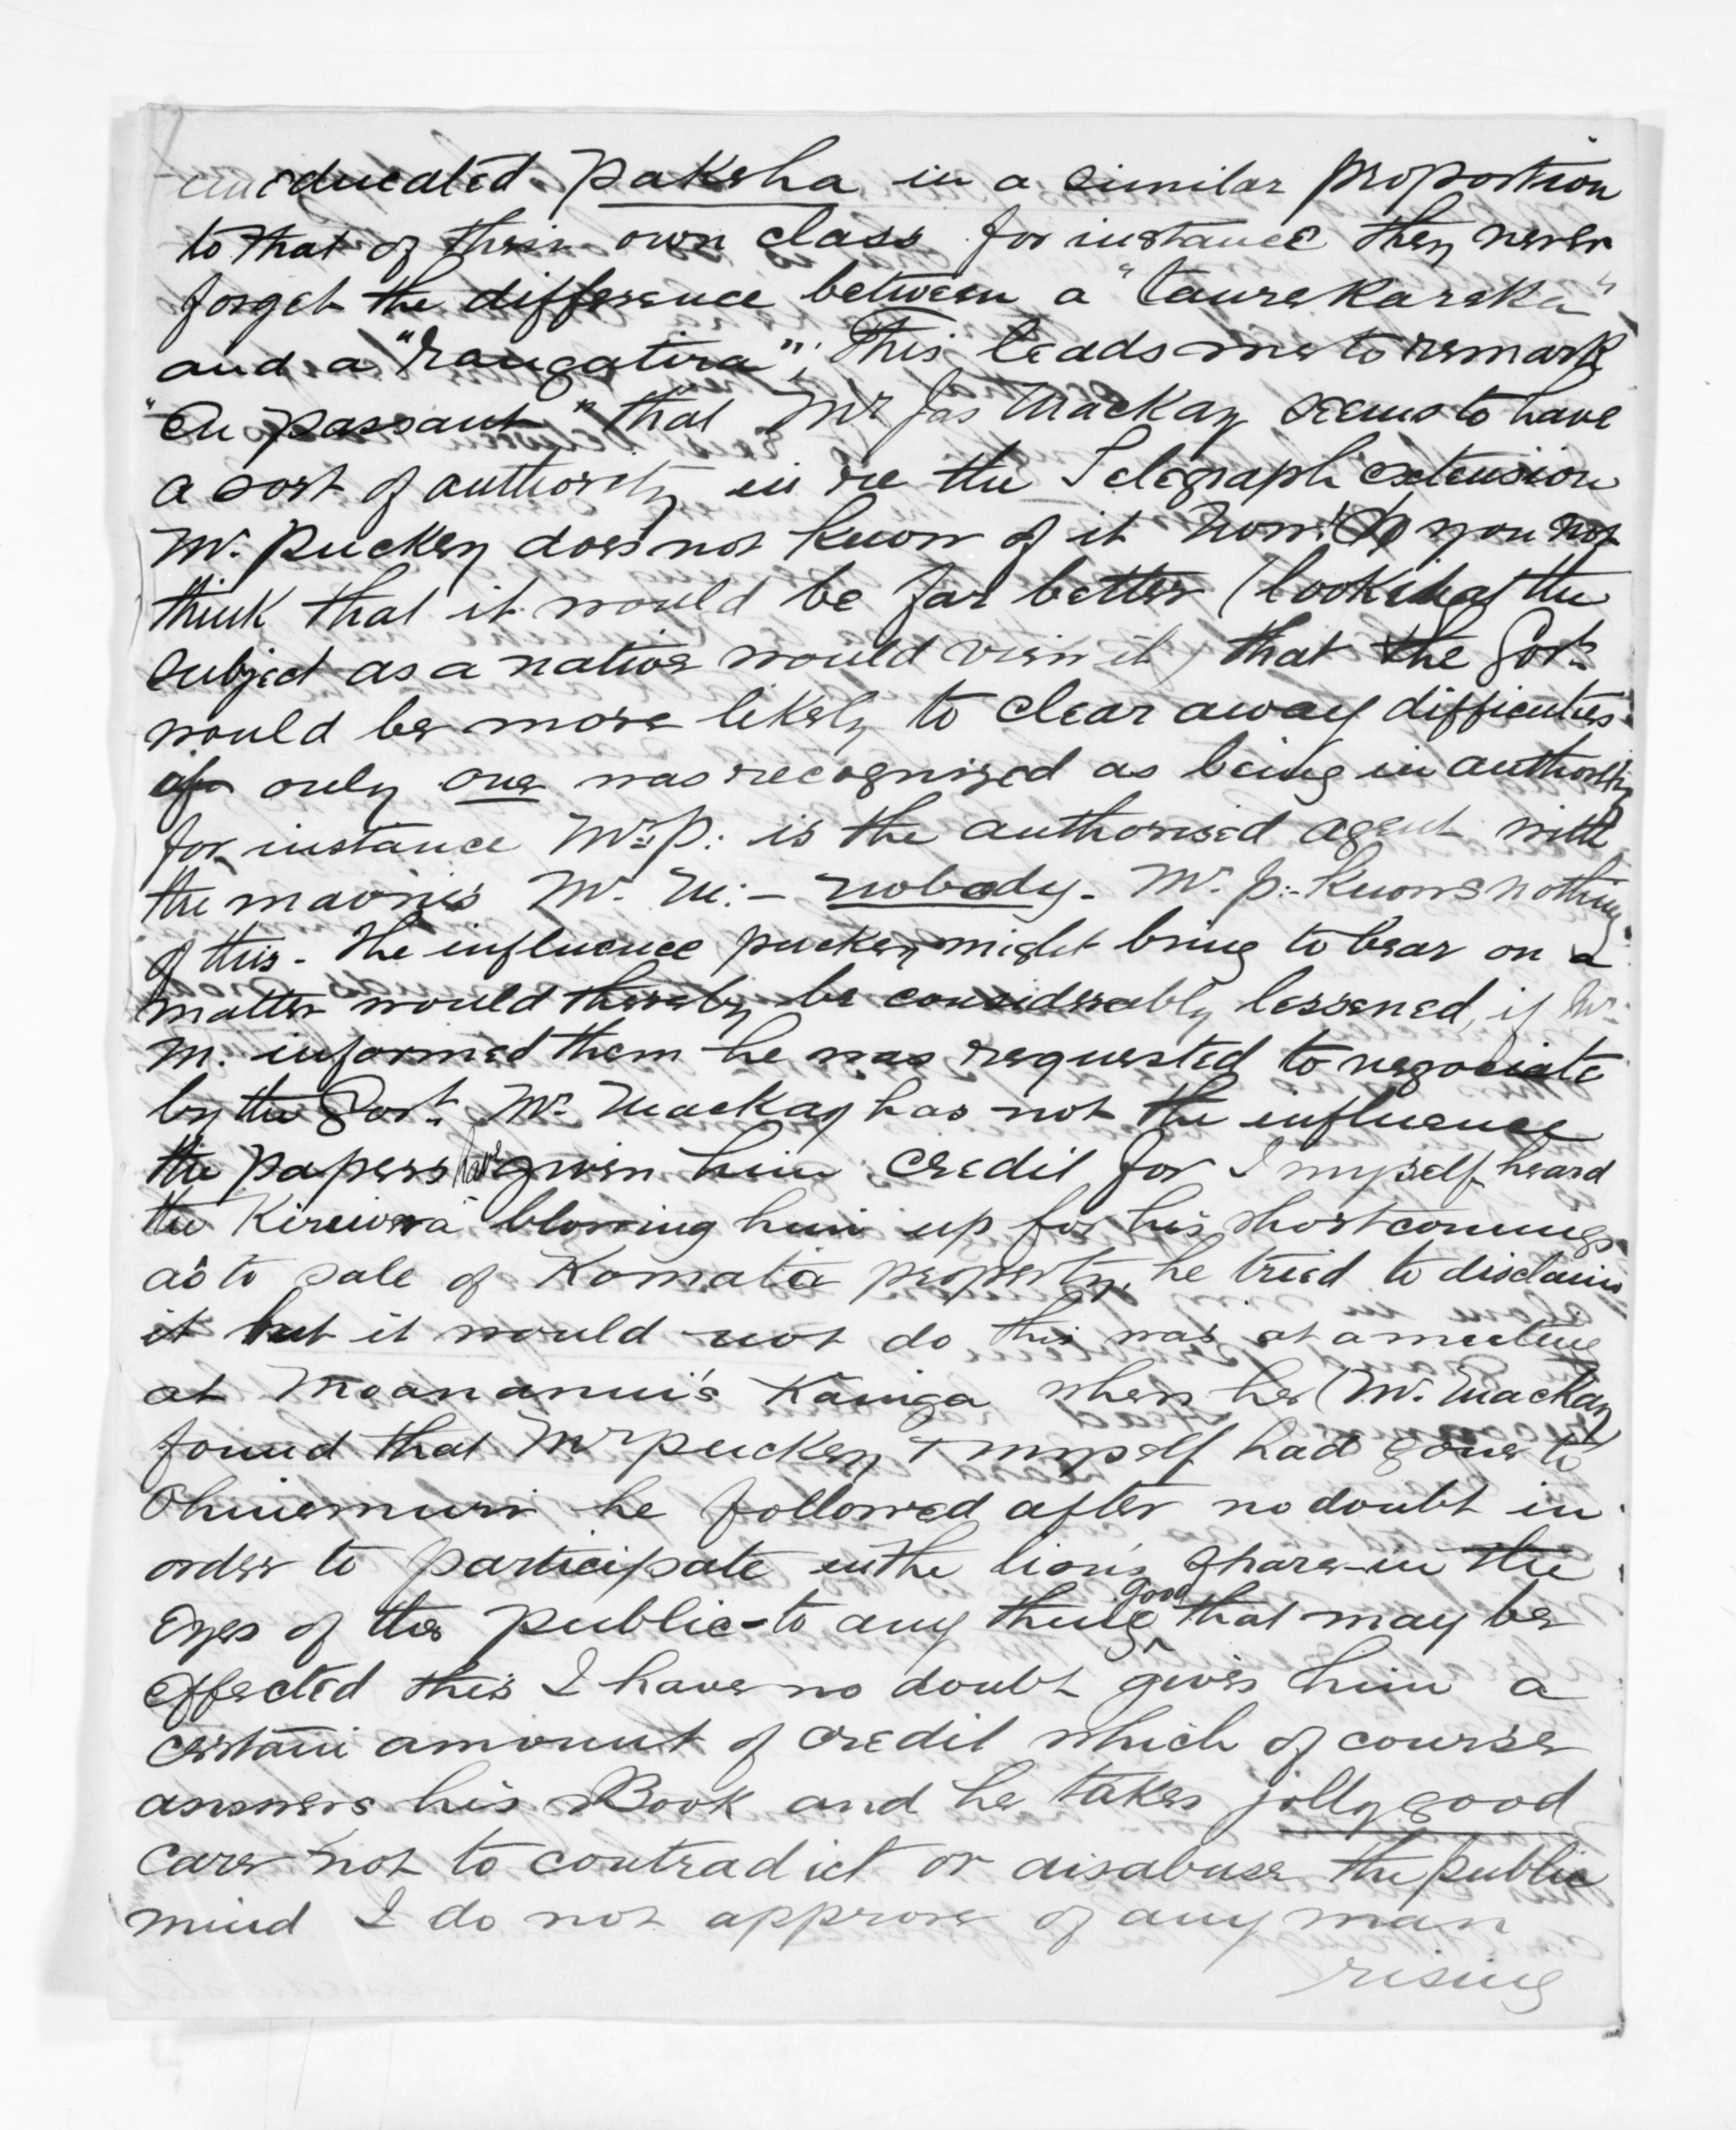 uneducated pakeha in a similar proportion
to that of their own class for instance they never
forget the difference between a "taurekareka"
and a "rangatira"; This leads me to remark
"En passant" that Mr Jas Mackay seems to have
a sort of authority in re the Telegraph extension
Mr. Puckey does not know of it Now! do you not
think that it would be far better (looking at the
subject as a native would view it) that the Govt.
would be more likely to clear away difficulties
if only one was recognized as being in authority
for instance Mr. P. is the authorised agent with
the maoris Mr. M:- nobody. Mr. P:- knows nothing
of this. The influence puckey might bring to bear on a
matter would thereby be considerably lessened, if Mr.
M. informed them he was requested to negociate
by the Govt. Mr. Mackay has not the influence
the papers have given him credit for I myself heard
the Kirewera blowing him up for his shortcomings
as to sale of Komata property, he tried to disclaim
it but it would not do this was at a meeting
at Moananui's Kainga when he (Mr. Mackay
found that Mr puckey & myself had gone to
Ohinemuri he followed after no doubt in
order to participate in the lion's share-in the
Eyes of the public-to any thing good that may be
effected this I have no doubt gives him a
certain amount of credit which of course
answers his Book and he takes jolly good
care not to contradict or disabuse the public
mind I do not approve of any man
rising